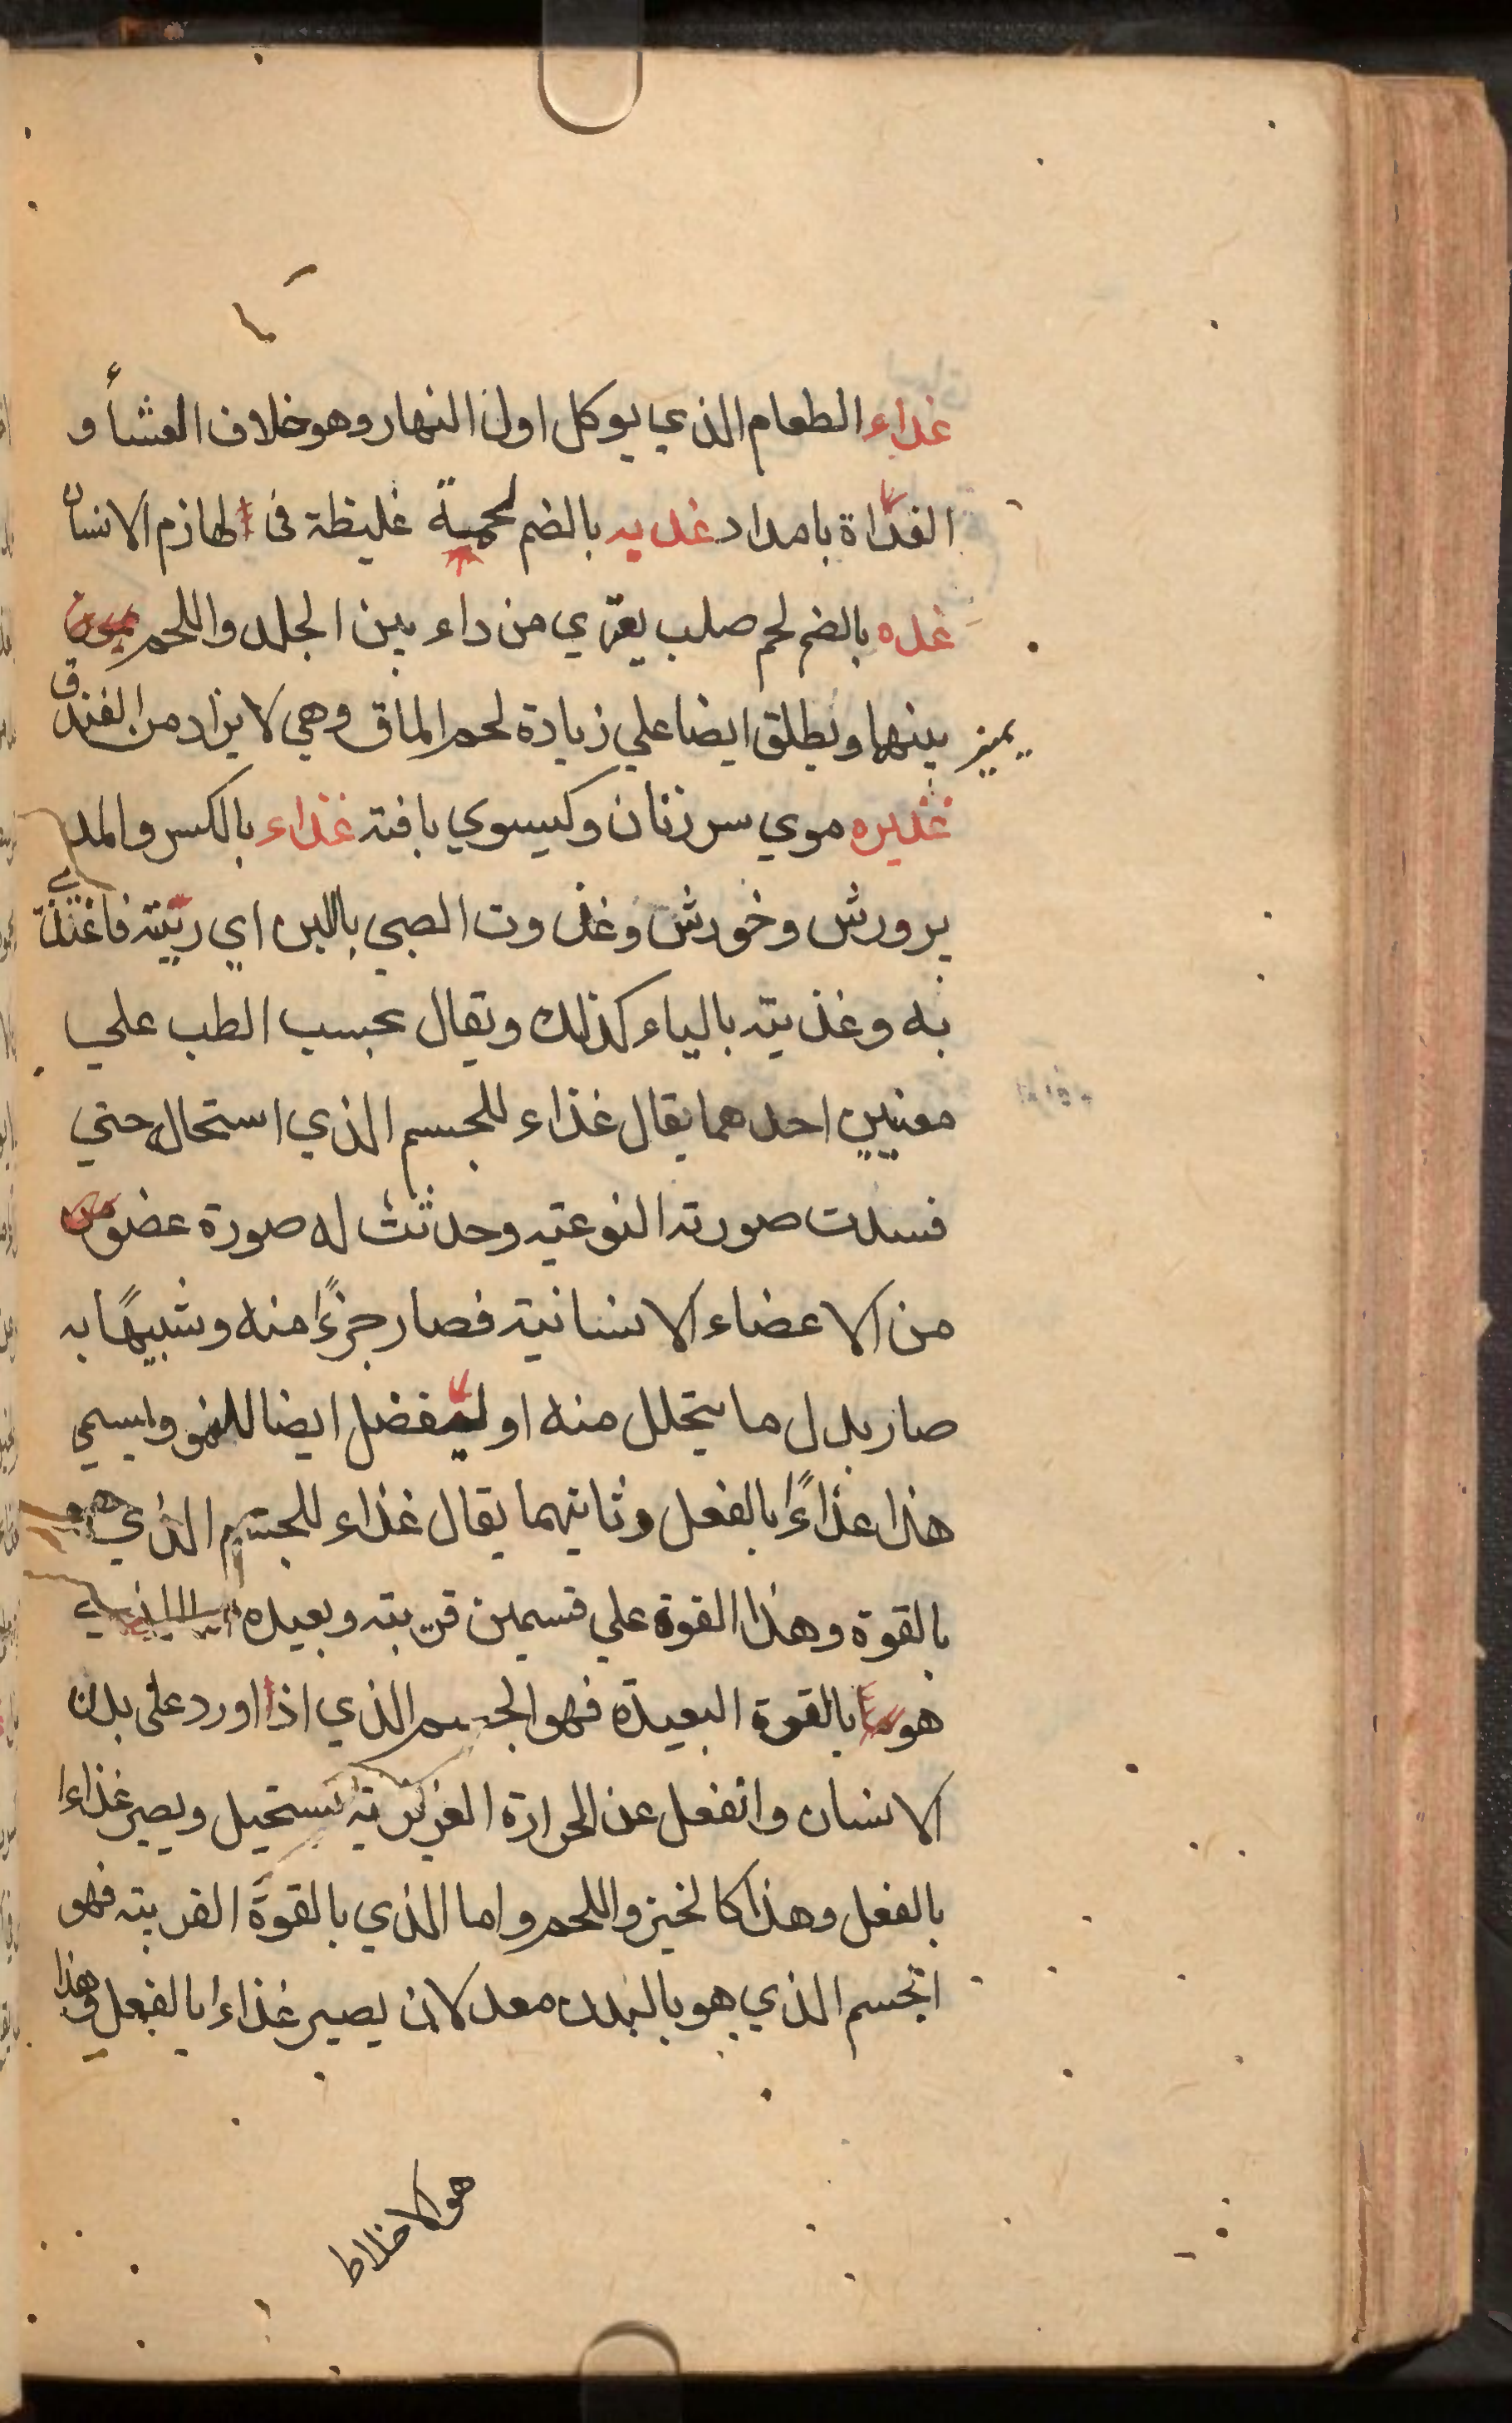 غداء الطعام الذي يوكل اول النهار وهو خلاف العشأ و
الغداة بامداد غديه بالضم لحمية غليظة فى لهازم الانسان
غده بالضم لحم صلب يعتري من داء بين الجلد واللحم
يميز بينهما ويطلق ايضا علي زيادة لحم الماق وهي لا يزاد من الفندق
غديره موي سر زنان وكيسوي بافته غذاء بالكسر والمد
پرورش وخورش وغذوت الصبي باللبن اي ربيته فاغتذي
به وغذيته بالياء كذلك ويقال بحسب الطب علي
معنيين احدهما يقال غذاء للجسم الذي استحال حتي
فسدت صورته النوعيه وحدثت له صورة عضو
من الاعضاء الانسانية فصار جزءًا منه وشبيهًا به
صار بدل ما يتحلل منه او ليفضل ايضا للنمو ويسمي
هذا غذاءً بالفعل وثانيهما يقال غذاء للجسم الذي هو
بالقوة وهذا القوة علي قسمين قريبته وبعيده
هو بالقوة البعيدة فهو الجسم الذي اذا اورد على بدن
الانسان وانفعل عن الحرارة الغريزية يستحيل ويصير غذاءا
بالفعل وهذا كالخبز واللحم واما الذي بالقوة القريبته فهو
الجسم الذي هو بالبدن معد لان يصير غذاءا بالفعل وهذا
هو الاخلاط